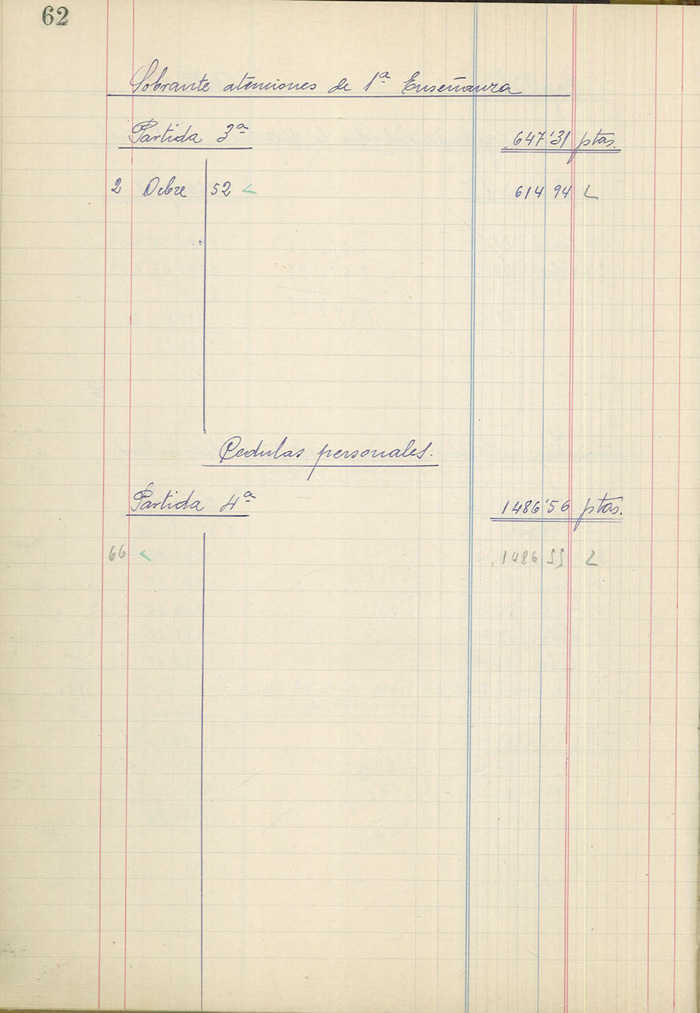 62
Sobrante atenciones de 1ª Enseñanza
Partida 3ª 647'31 ptas.
2 Dcbre 52 614 94
Cedulas personales.
Partida 4ª 1486'56 ptas.
66 1486 55